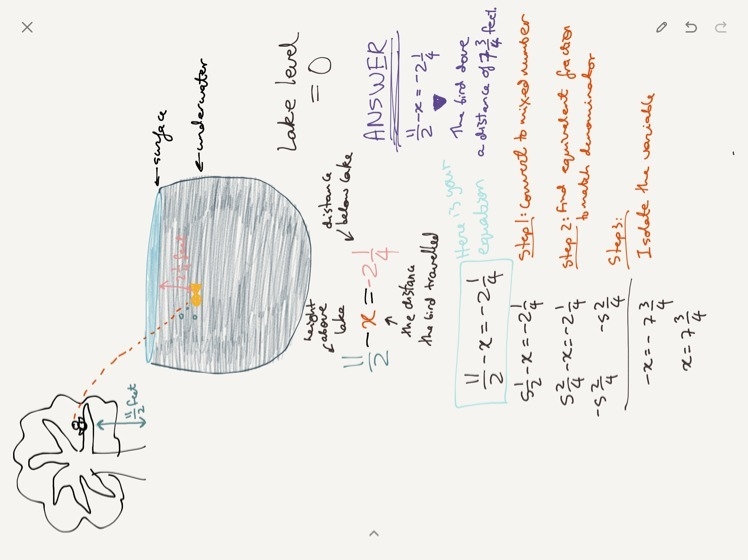 ←surface
←underwater
Lake level
= 0
11/2 feet
2 1/4 feet
height
above
lake
distance
below lake
11/2 - x = -2 1/4
the distance
the bird travelled
ANSWER
11/2 - x = -2 1/4
The bird dove
a distance of 7 3/4 feet.
11/2 - x = -2 1/4
Here is your
equation
5 1/2 - x = -2 1/4
Step 1: Convert to mixed number
5 2/4 - x = -2 1/4
Step 2: Find equivalent fraction
to match denominator
-5 2/4 -5 2/4
Step 3:
Isolate the variable
-x = -7 3/4
x = 7 3/4